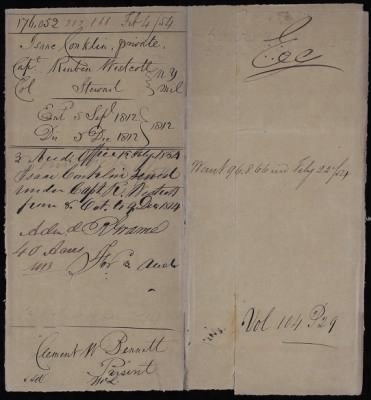 176,052 213,168 Feb 4/54
Isaac Conklin, private,
Capt Reuben Westcott
Col Steward
N.Y. Mil
Ent 5 Sep 1812
Dis 5 Dec 1812
1812
3 Aud. Office
Isaac Conklin served
under Capt R. Westcott
from 8 Oct. to 9 Dec 1814
40 Acres
for 3 Aud
Clement W Bennett
Present
Warrt 96.866 Feby 22/54
Vol 104 P 29